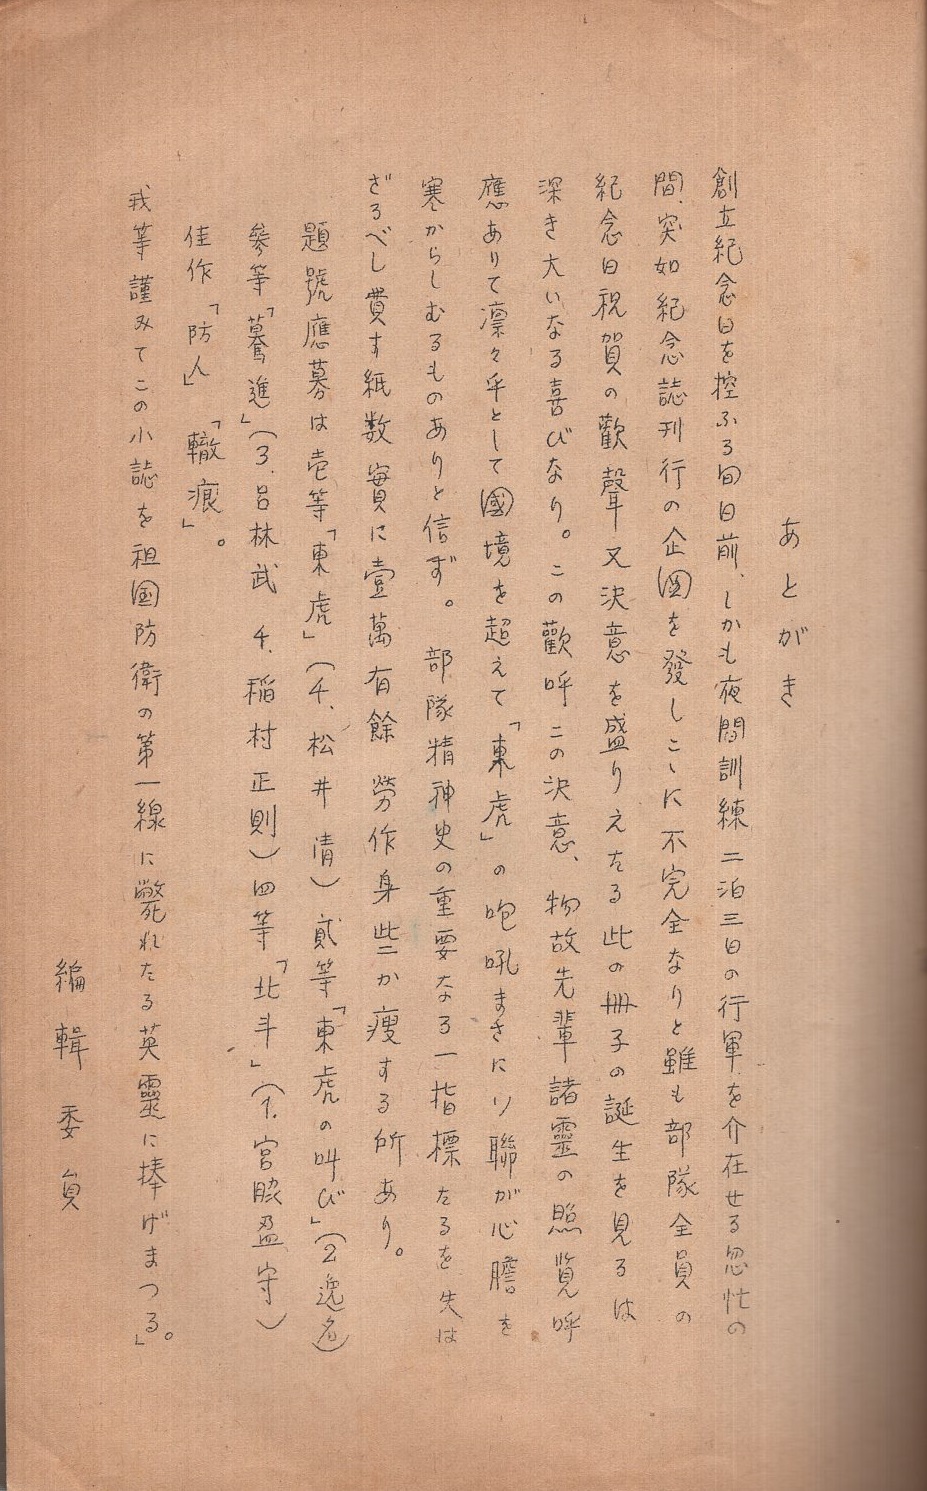 あとがき
創立紀念日を控ふる旬日前、しかも夜間訓練二泊三日の行軍を介在せる忽忙の
間、突如紀念誌刊行の企圖を發しこゝに不完全なりと雖も部隊全員の
紀念日祝賀の歡聲又決意を盛りえたる此の冊子の誕生を見るは
深き大いなる喜びなり。この歡呼この決意、物故先輩諸靈の照覧呼
應ありて凛々乎として國境を超えて「東虎」の咆吼まさにソ聯が心膽を
寒からしむるものありと信ず。部隊精神史の重要なる一指標たるを失は
ざるべし費す紙数實に壹萬有餘 勞作身些か痩する所あり。
題號應募は壱等「東虎」(4、松井清)貮等「東虎の叫び」(2逸名)
參等「驀進」(3.呂林武 4.稲村正則)四等「北斗」(1.宮脇盈守)
佳作「防人」「轍痕」。
我等謹みてこの小誌を祖国防衛の第一線に斃れたる英靈に捧げまつる。」
編輯委員